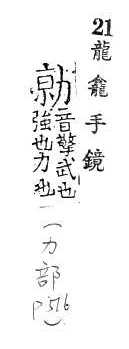 21 龍龕手鏡
勍音擎武也
強也力也
(力部 P516)